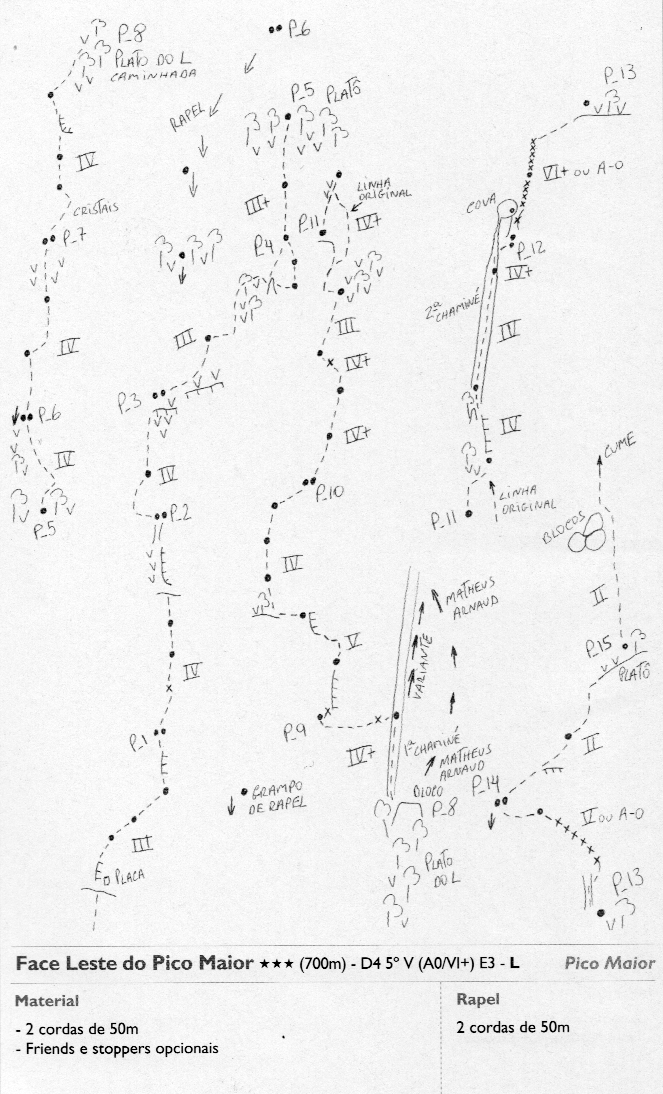 P_8
PLATO DO L
CAMINHADA
IV
CRISTAIS
P_7
IV
P_6
IV
P_5
P_6
RAPEL
P_5 PLATÔ
III+
P_4
III
P_3
IV
P_2
IV
P_1
III
PLACA
LINHA
ORIGINAL
P_11
IV+
III
IV+
IV+
P_10
IV
V
P_9
IV+
1ª CHAMINÉ
VARIANTE
MATHEUS
ARNAUD
MATHEUS
ARNAUD
BLOCO
P_8
PLATO
DO L
GRAMPO
DE RAPEL
P_13
VI+ OU A-O
COVA
P_12
IV+
2ª CHAMINÉ
IV
IV
P_11
LINHA
ORIGINAL
CUME
BLOCOS
II
P_15
PLATÔ
II
P_14
V OU A-O
P_13
Face Leste do Pico Maior ★★★ (700m) - D4 5º V (A0/VI+) E3 - L
Pico Maior
Material
- 2 cordas de 50m
- Friends e stoppers opcionais
Rapel
2 cordas de 50m